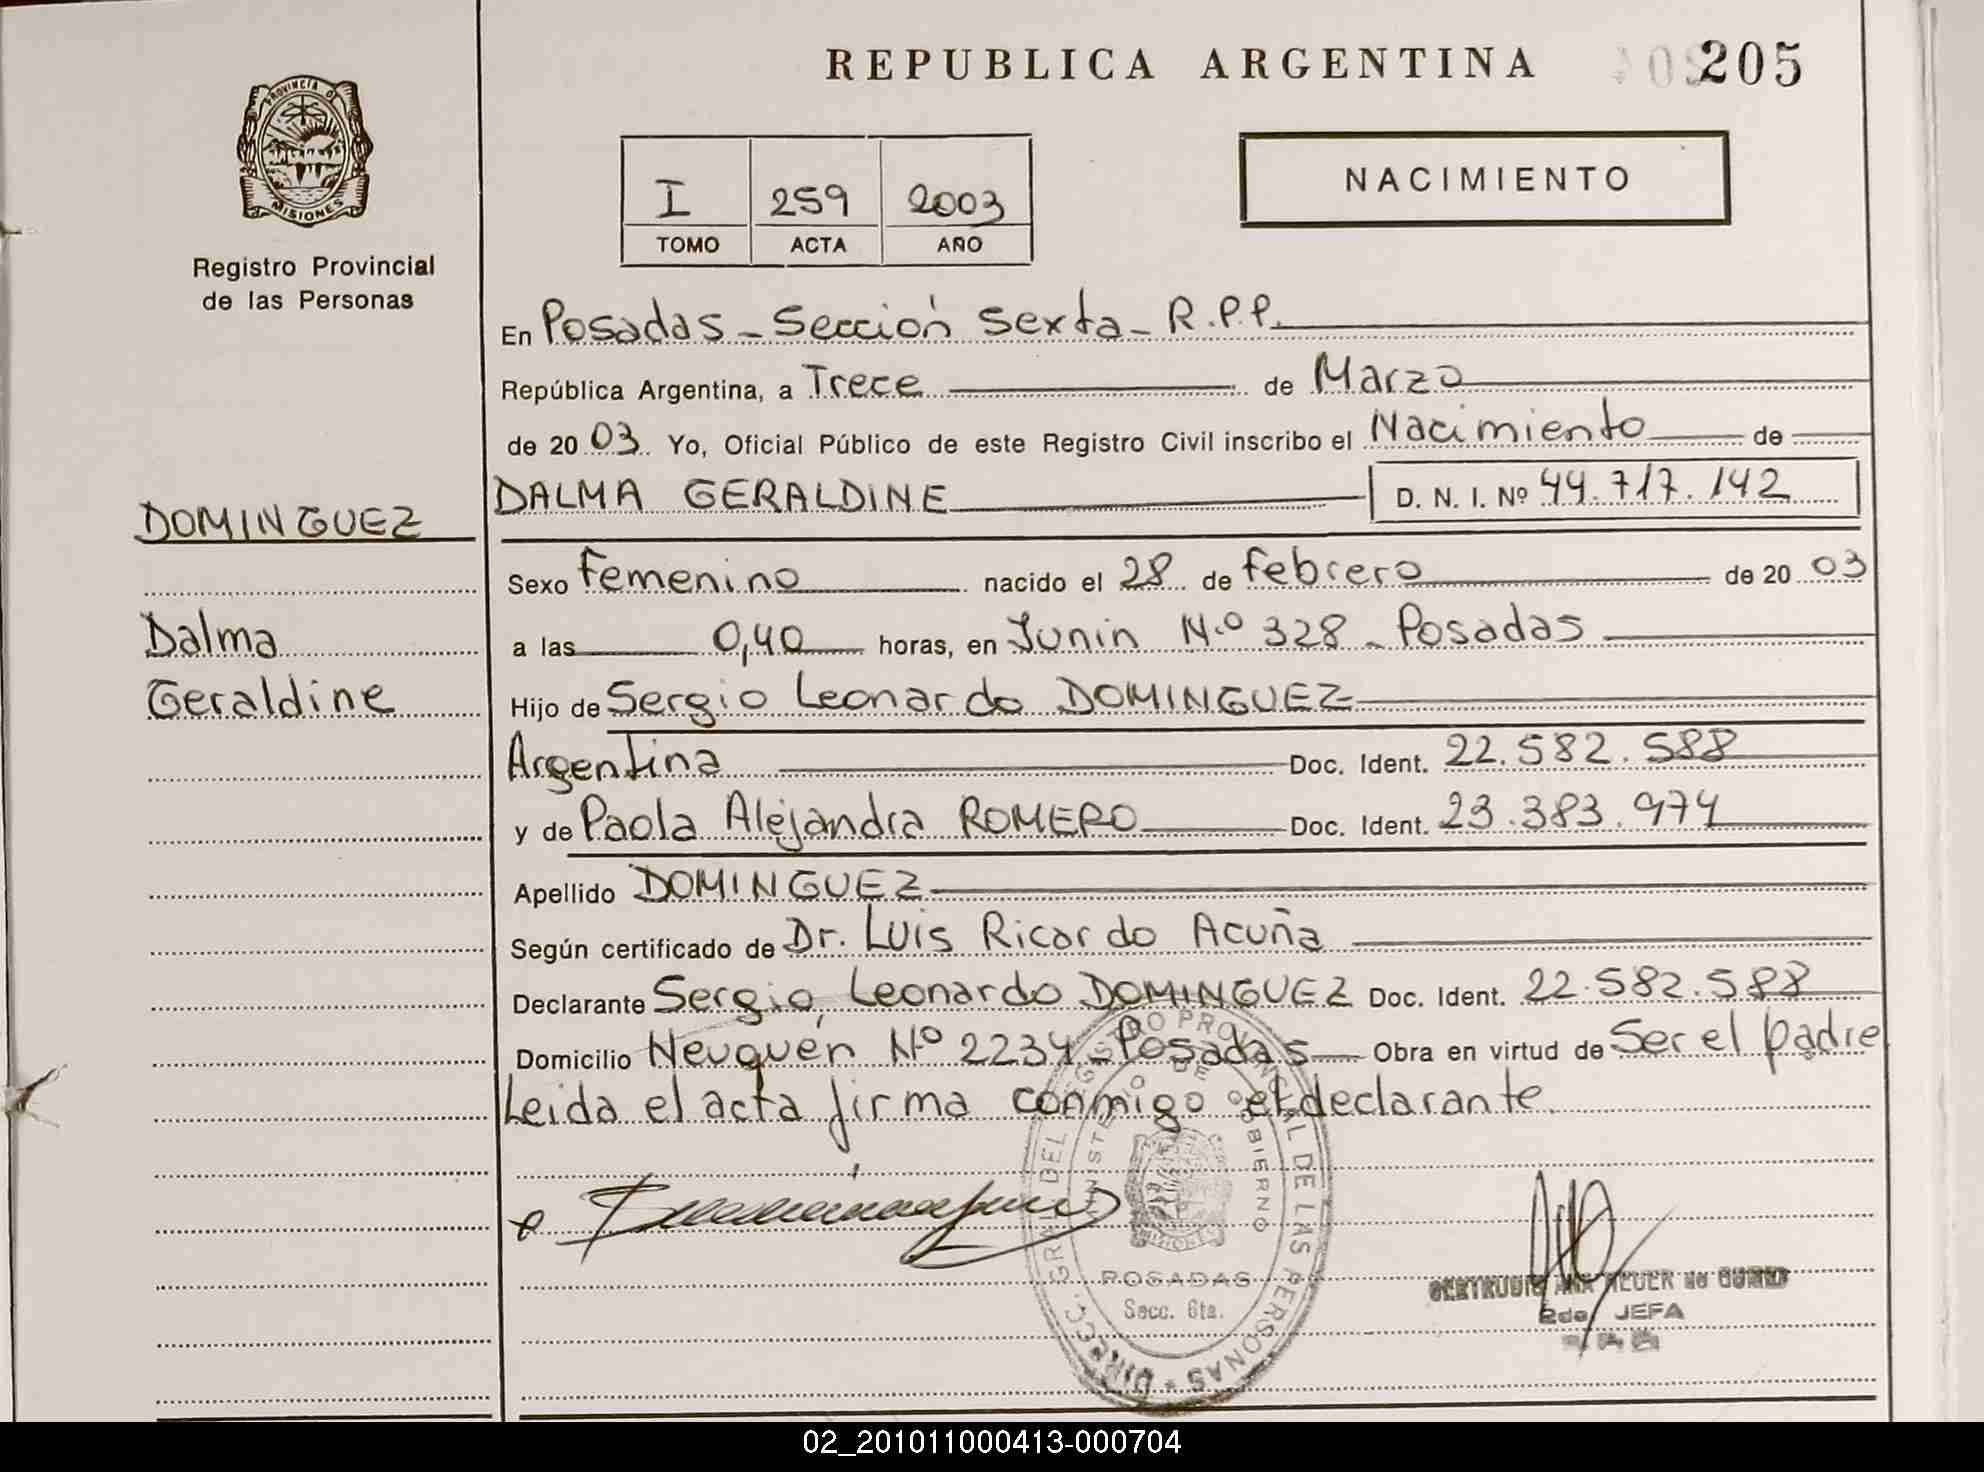 REPUBLICA ARGENTINA
205
PROVINCIA DE
MISIONES
Registro Provincial
de las Personas
I 259 2003
TOMO ACTA AÑO
NACIMIENTO
En Posadas - Sección Sexta - R.P.P.
República Argentina, a Trece de Marzo
de 20 03 Yo, Oficial Público de este Registro Civil inscribo el Nacimiento de
DALMA GERALDINE D. N. I. Nº 44.717.142
DOMINGUEZ
Dalma
Geraldine
Sexo Femenino nacido el 28 de febrero de 20 03
a las 0,40 horas, en Junin N.º 328 - Posadas
Hijo de Sergio Leonardo DOMINGUEZ
Argentina Doc. Ident. 22.582.588
y de Paola Alejandra ROMERO Doc. Ident. 23.383.974
Apellido DOMINGUEZ
Según certificado de Dr. Luis Ricardo Acuña
Declarante Sergio Leonardo DOMINGUEZ Doc. Ident. 22.582.588
Domicilio Neuquén Nº 2234 - Posadas Obra en virtud de Ser el padre
Leida el acta firma conmigo el declarante
DIRECC. GRAL DEL REGISTRO PROVINCIAL DE LAS PERSONAS
MINISTERIO DE GOBIERNO
POSADAS
Secc. 6ta.
2da JEFA
02_201011000413-000704